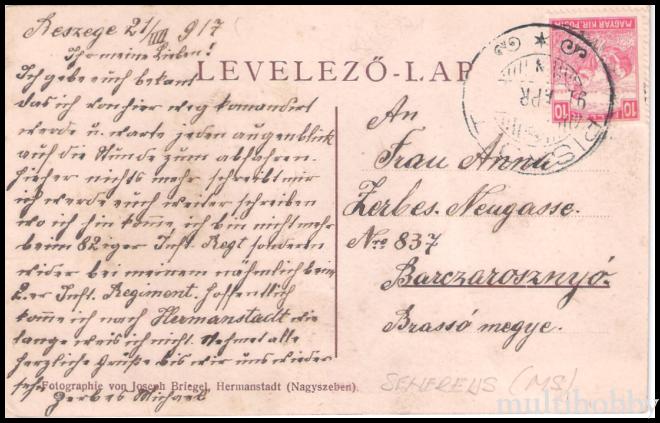 Reszege 21/III 917
Ihr meine Lieben!
Ich gebe euch bekant
das ich von hier weg komandirt
werde u. warte jeden augenblick
auf die Stunde zum abfahren.
hieher nichts mehr schreibt mir
ich werde euch weiter schreiben
wo ich hin komme ich bin nicht mehr
beim 82iger Inft. Regt sondern
wider bei meinem nähmlich beim
2.er Inft. Regiment. hoffentlich
komme ich nach Hermanstadt wie
lange weis ich nicht. Nehmet alle
herzliche Grüße bis wir uns wieder
Zerbes Michael
LEVELEZŐ-LAP
An
Frau Anna
Zerbes. Neugasse.
Nro 837
Barczarosznyó.
Brassó megye.
MAGYAR KIR. POSTA
10
10
Fotographie von Joseph Briegel, Hermanstadt (Nagyszeben).
(MS)
multibobby